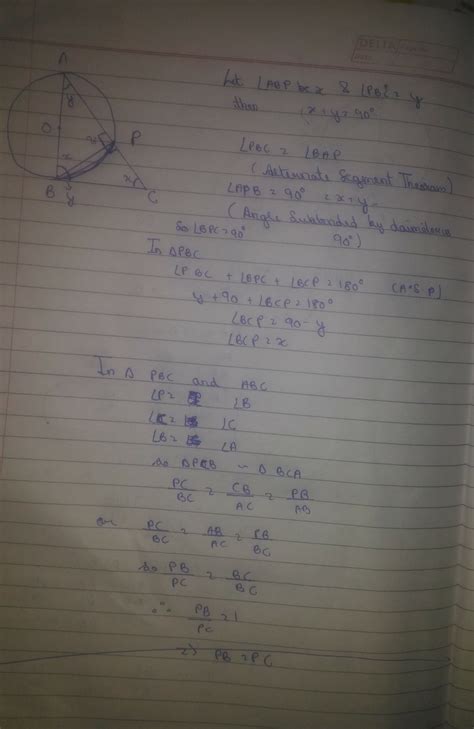 DELTA
A
y
O
90
P
x
x
B
y
C
Let ∠ABP be x & ∠PBC = y
then x + y = 90°
∠PBC = ∠BAP
(Alternate Segment Theorem)
∠APB = 90° = x + y
(Angle Subtended by daimeter 90°)
So ∠BPC = 90°
In ΔPBC
∠PBC + ∠BPC + ∠BCP = 180° (A.S.P)
y + 90 + ∠BCP = 180°
∠BCP = 90 - y
∠BCP = x
In Δ PBC and ABC
∠P = ∠B
∠C = ∠C
∠B = ∠A
So ΔPCB ~ Δ BCA
PC/BC = CB/AC = PB/AB
or PC/BC = AB/AC = PB/BC
So PB/PC = BC/BC
∴ PB/PC = 1
=> PB = PC